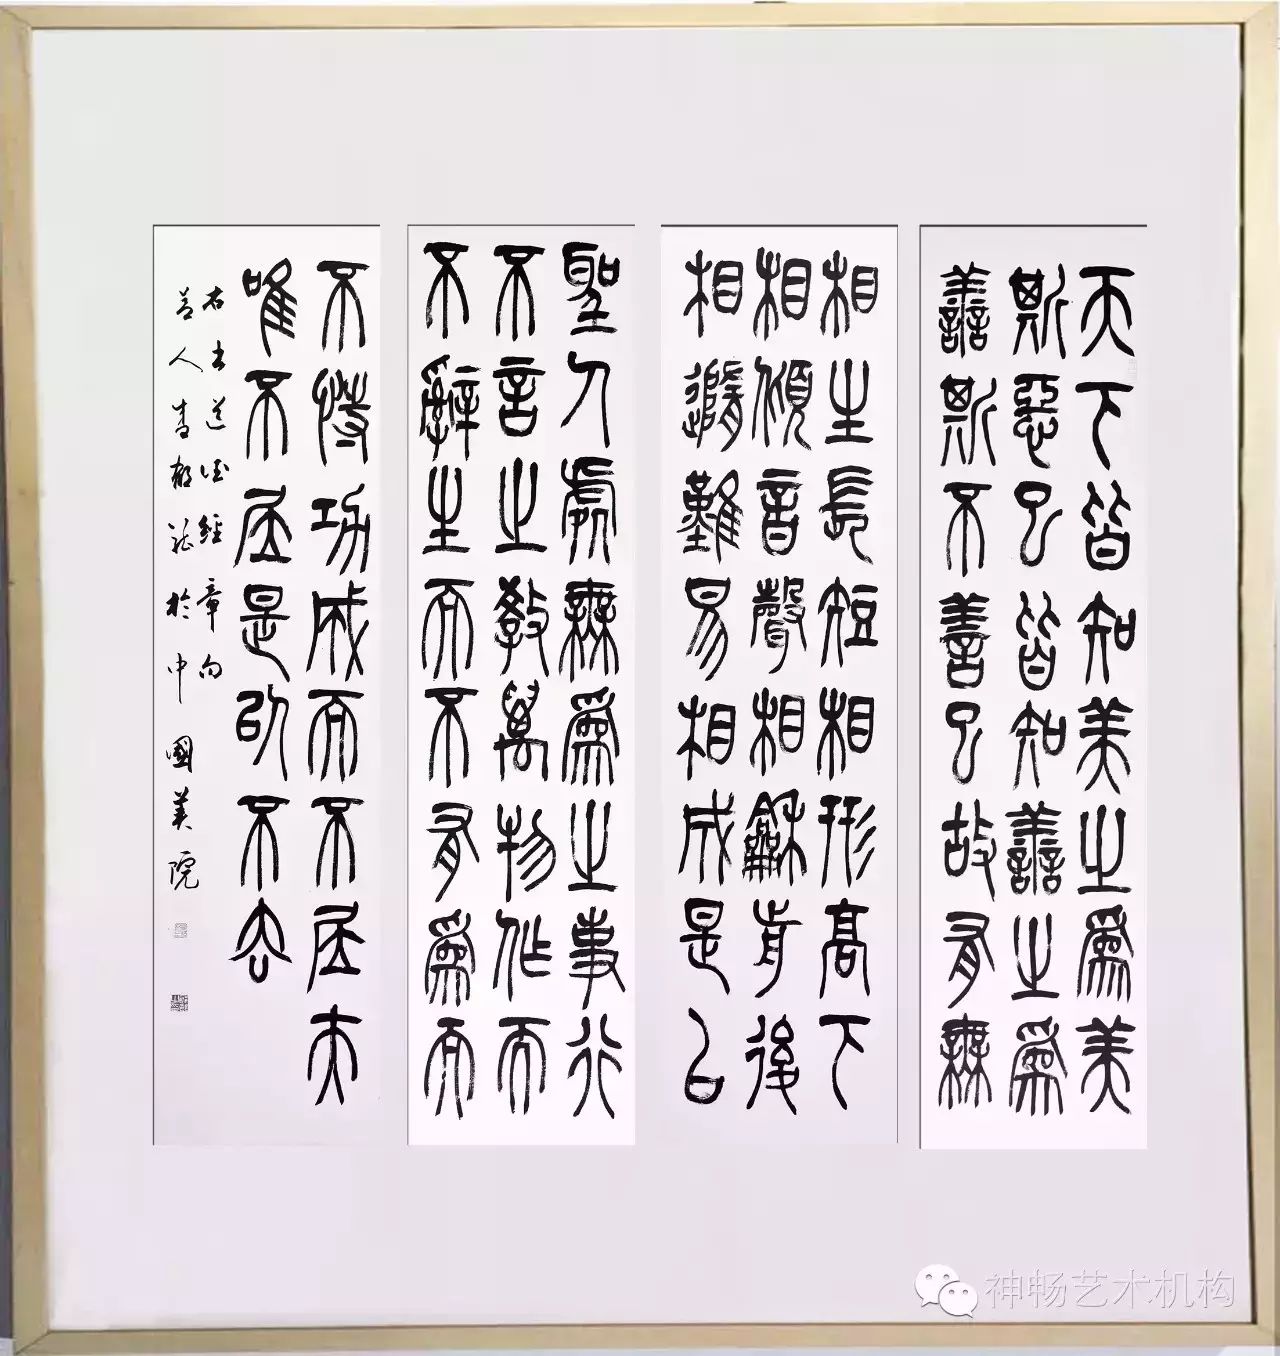 天下皆知美之爲美
斯惡已皆知善之爲
善斯不善已故有無
相生長短相形高下
相傾音聲相龢前後
相隨難易相成是以
聖人處無爲之事行
不言之教萬物作而
不辭生而不有爲而
不恃功成而不居夫
唯不居是以不去
右書道德經章句
人於中國美院
神畅艺术机构